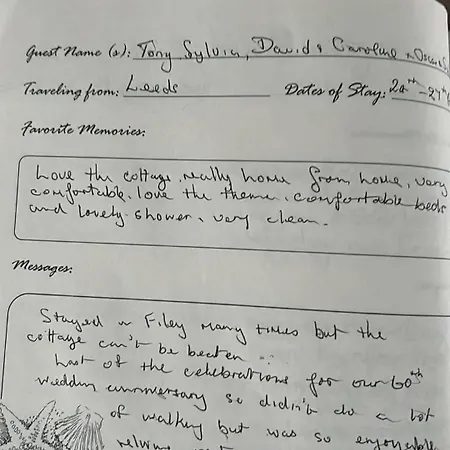 Guest Name (s): Tony Sylvia, David & Caroline
Traveling from: Leeds Dates of Stay: 20th - 27th
Favorite Memories:
Love the cottage, really home from home, very
comfortable, love the theme, comfortable beds
and lovely shower, very clean.
Messages:
Stayed in Filey many times but the
cottage can't be beaten
of the celebrations for our 60th
wedding anniversary so didn't do a lot
of walking but was so enjoyable